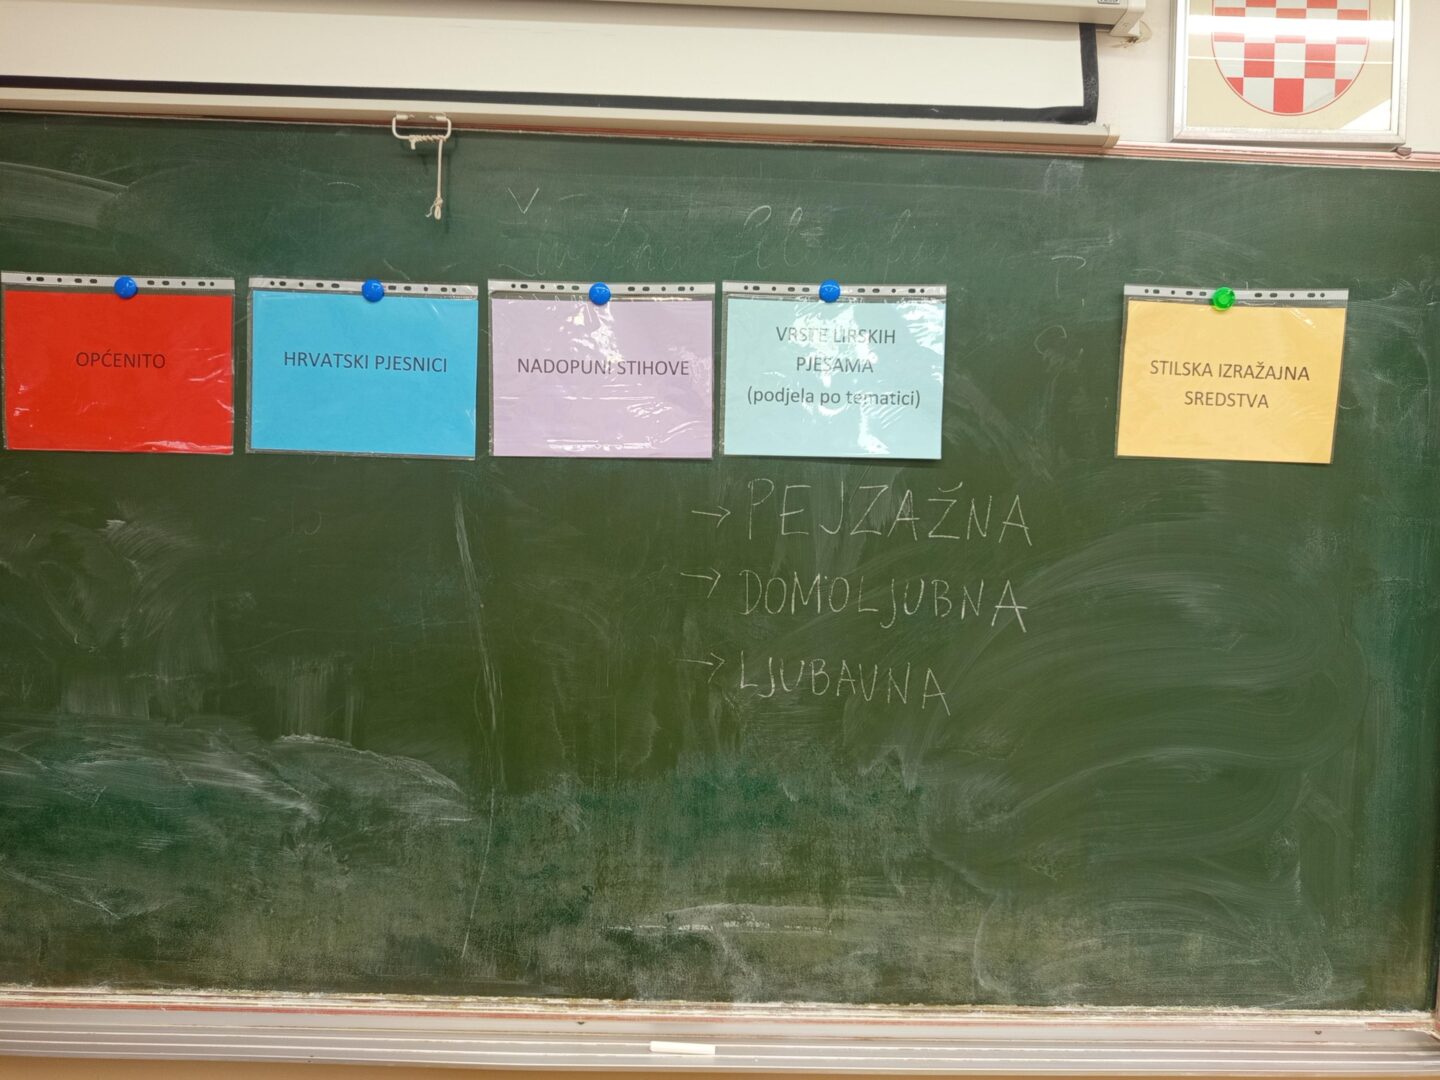 OPĆENITO
HRVATSKI PJESNICI
NADOPUNI STIHOVE
VRSTE LIRSKIH
PJESAMA
(podjela po tematici)
STILSKA IZRAŽAJNA
SREDSTVA
→ PEJZAŽNA
→ DOMOLJUBNA
→ LJUBAVNA